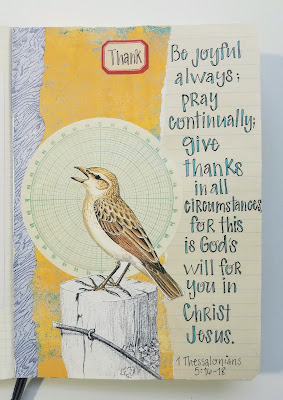 Thank
Be joyful
always;
pray
continually;
give
thanks
in all
circumstances,
for this
is God's
will for
you in
Christ
Jesus.
1 Thessalonians
5:16-18